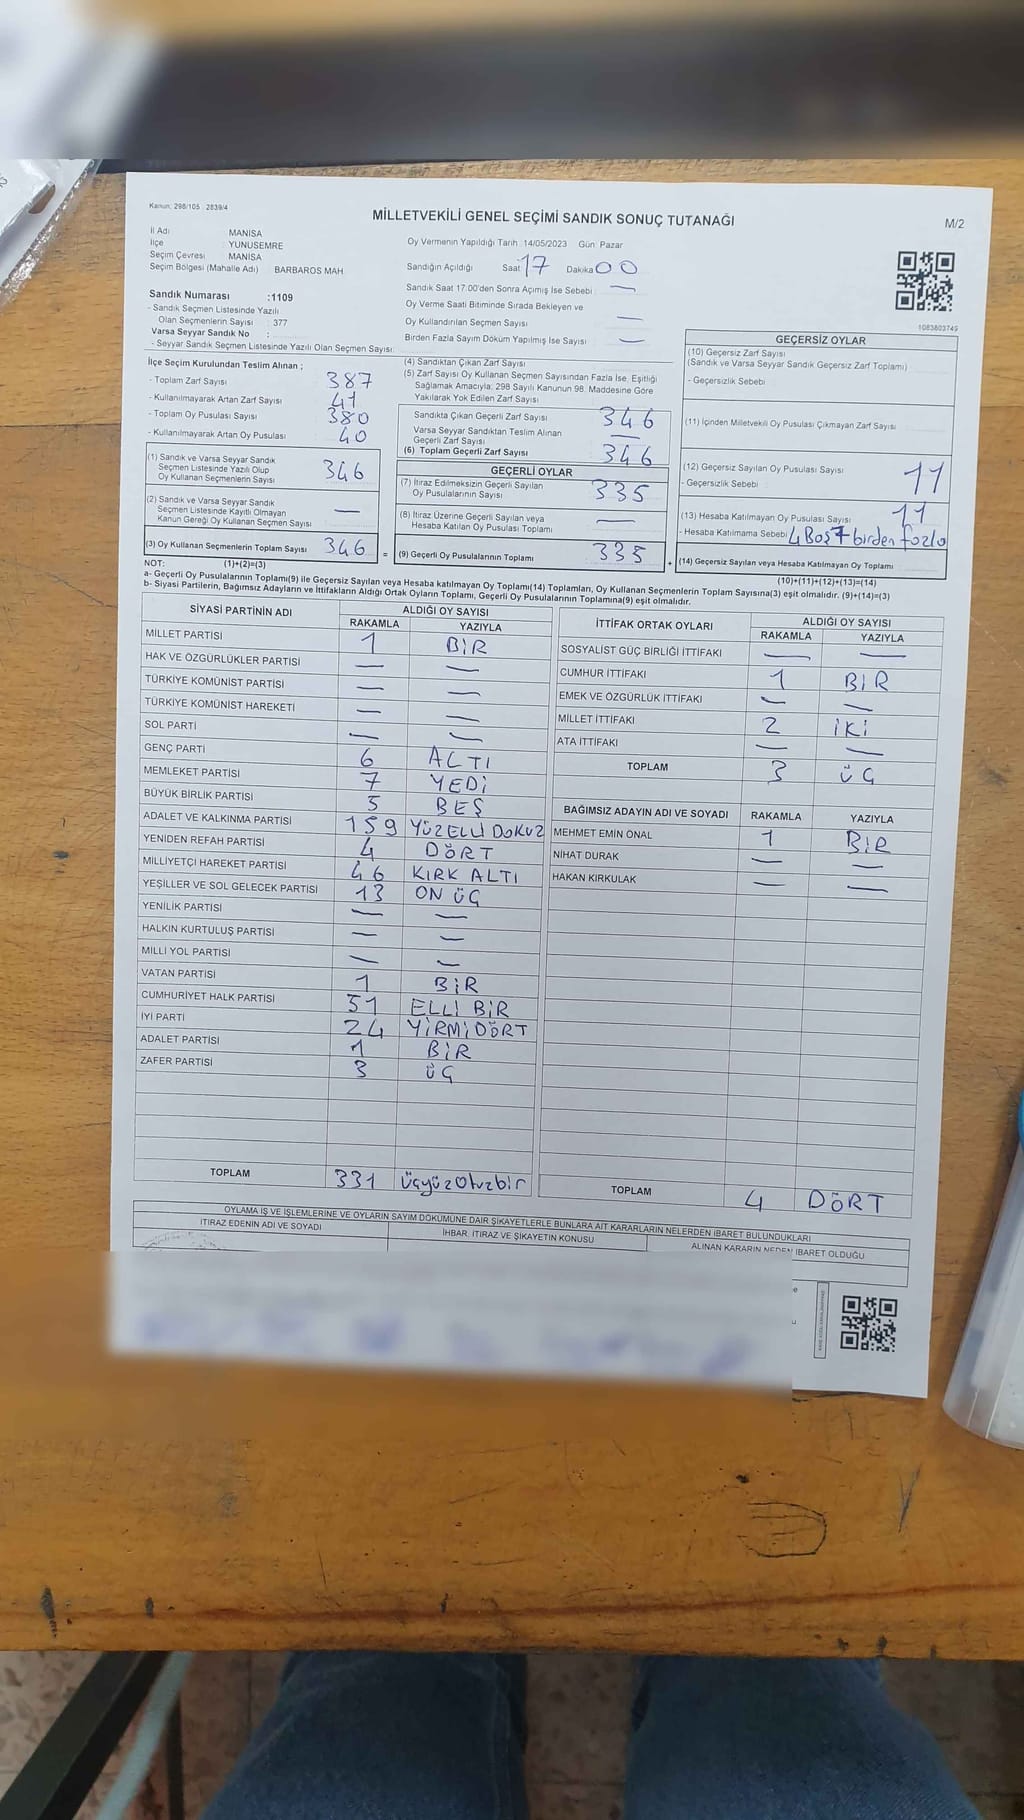 Kanun: 298/105 2839/4
MİLLETVEKİLİ GENEL SEÇİMİ SANDIK SONUÇ TUTANAĞI
M/2
İl Adı MANİSA
İlçe YUNUSEMRE
Seçim Çevresi MANİSA
Seçim Bölgesi (Mahalle Adı) BARBAROS MAH.
Oy Vermenin Yapıldığı Tarih :14/05/2023 Gün: Pazar
Sandığın Açıldığı Saat 17 Dakika 00
Sandık Saat 17:00'den Sonra Açımış İse Sebebi : —
Oy Verme Saati Bitiminde Sırada Bekleyen ve
Oy Kullandırılan Seçmen Sayısı —
Birden Fazla Sayım Döküm Yapılmış İse Sayısı —
1083803749
Sandık Numarası :1109
- Sandık Seçmen Listesinde Yazılı
Olan Seçmenlerin Sayısı : 377
Varsa Seyyar Sandık No :
- Seyyar Sandık Seçmen Listesinde Yazılı Olan Seçmen Sayısı:
İlçe Seçim Kurulundan Teslim Alınan ;
- Toplam Zarf Sayısı 387
- Kullanılmayarak Artan Zarf Sayısı 41
- Toplam Oy Pusulası Sayısı 380
- Kullanılmayarak Artan Oy Pusulası 40
(1) Sandık ve Varsa Seyyar Sandık
Seçmen Listesinde Yazılı Olup
Oy Kullanan Seçmenlerin Sayısı 346
(2) Sandık ve Varsa Seyyar Sandık
Seçmen Listesinde Kayıtlı Olmayan
Kanun Gereği Oy Kullanan Seçmen Sayısı —
(3) Oy Kullanan Seçmenlerin Toplam Sayısı 346
=
(4) Sandıktan Çıkan Zarf Sayısı
(5) Zarf Sayısı Oy Kullanan Seçmen Sayısından Fazla İse, Eşitliği
Sağlamak Amacıyla; 298 Sayılı Kanunun 98. Maddesine Göre
Yakılarak Yok Edilen Zarf Sayısı
Sandıkta Çıkan Geçerli Zarf Sayısı 346
Varsa Seyyar Sandıktan Teslim Alınan
Geçerli Zarf Sayısı —
(6) Toplam Geçerli Zarf Sayısı 346
GEÇERLİ OYLAR
(7) İtiraz Edilmeksizin Geçerli Sayılan
Oy Pusulalarının Sayısı 335
(8) İtiraz Üzerine Geçerli Sayılan veya
Hesaba Katılan Oy Pusulası Toplamı —
(9) Geçerli Oy Pusulalarının Toplamı 335
+
GEÇERSİZ OYLAR
(10) Geçersiz Zarf Sayısı
(Sandık ve Varsa Seyyar Sandık Geçersiz Zarf Toplamı)
- Geçersizlik Sebebi
(11) İçinden Milletvekili Oy Pusulası Çıkmayan Zarf Sayısı
(12) Geçersiz Sayılan Oy Pusulası Sayısı 11
- Geçersizlik Sebebi
(13) Hesaba Katılmayan Oy Pusulası Sayısı 11
- Hesaba Katılmama Sebebi 4 Boş 7 birden fazla
(14) Geçersiz Sayılan veya Hesaba Katılmayan Oy Toplamı
NOT: (1)+(2)=(3)
(10)+(11)+(12)+(13)=(14)
a- Geçerli Oy Pusulalarının Toplamı(9) ile Geçersiz Sayılan veya Hesaba katılmayan Oy Toplamı(14) Toplamları, Oy Kullanan Seçmenlerin Toplam Sayısına(3) eşit olmalıdır. (9)+(14)=(3)
b- Siyasi Partilerin, Bağımsız Adayların ve İttifakların Aldığı Ortak Oyların Toplamı, Geçerli Oy Pusulalarının Toplamına(9) eşit olmalıdır.
SİYASİ PARTİNİN ADI ALDIĞI OY SAYISI
RAKAMLA YAZIYLA
MİLLET PARTİSİ 1 BİR
HAK VE ÖZGÜRLÜKLER PARTİSİ — —
TÜRKİYE KOMÜNİST PARTİSİ — —
TÜRKİYE KOMÜNİST HAREKETİ — —
SOL PARTİ — —
GENÇ PARTİ 6 ALTI
MEMLEKET PARTİSİ 7 YEDİ
BÜYÜK BİRLİK PARTİSİ 5 BEŞ
ADALET VE KALKINMA PARTİSİ 159 YÜZELLİ DOKUZ
YENİDEN REFAH PARTİSİ 4 DÖRT
MİLLİYETÇİ HAREKET PARTİSİ 46 KIRK ALTI
YEŞİLLER VE SOL GELECEK PARTİSİ 13 ON ÜÇ
YENİLİK PARTİSİ — —
HALKIN KURTULUŞ PARTİSİ — —
MİLLİ YOL PARTİSİ — —
VATAN PARTİSİ 1 BİR
CUMHURİYET HALK PARTİSİ 51 ELLİ BİR
İYİ PARTİ 24 YİRMİ DÖRT
ADALET PARTİSİ 1 BİR
ZAFER PARTİSİ 3 ÜÇ
TOPLAM 331 üçyüzOtuzbir
İTTİFAK ORTAK OYLARI ALDIĞI OY SAYISI
RAKAMLA YAZIYLA
SOSYALİST GÜÇ BİRLİĞİ İTTİFAKI — —
CUMHUR İTTİFAKI 1 BİR
EMEK VE ÖZGÜRLÜK İTTİFAKI — —
MİLLET İTTİFAKI 2 İKİ
ATA İTTİFAKI — —
TOPLAM 3 ÜÇ
BAĞIMSIZ ADAYIN ADI VE SOYADI RAKAMLA YAZIYLA
MEHMET EMİN ÖNAL 1 BİR
NİHAT DURAK — —
HAKAN KIRKULAK — —
TOPLAM 4 DÖRT
OYLAMA İŞ VE İŞLEMLERİNE VE OYLARIN SAYIM DÖKÜMÜNE DAİR ŞİKAYETLERLE BUNLARA AİT KARARLARIN NELERDEN İBARET BULUNDUKLARI
İTİRAZ EDENİN ADI VE SOYADI İHBAR, İTİRAZ VE ŞİKAYETİN KONUSU ALINAN KARARIN NEDEN İBARET OLDUĞU